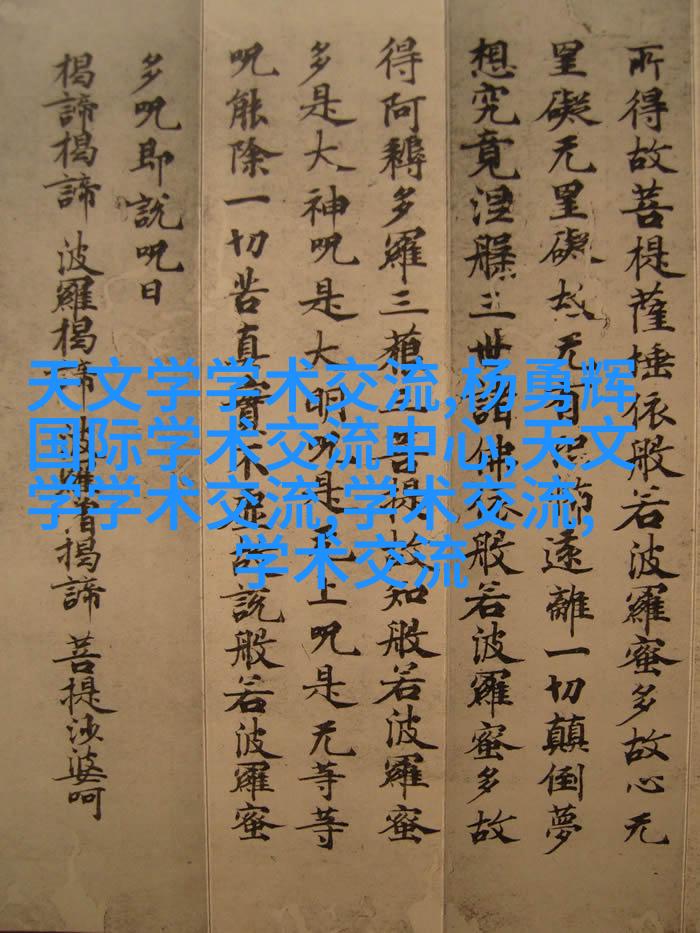 所得故菩提薩埵依般若波羅蜜多故心无
罣礙无罣礙故无有恐怖遠離一切顛倒夢
想究竟涅槃三世諸佛依般若波羅蜜多故
得阿耨多羅三藐三菩提故知般若波羅蜜
多是大神呪是大明呪是无上呪是无等等
呪能除一切苦真實不虛故說般若波羅蜜
多呪即說呪曰
揭諦揭諦 波羅揭諦 波羅僧揭諦 菩提沙婆呵
天文学学术交流,杨勇辉
国际学术交流中心,天文
学学术交流,学术交流,
学术交流